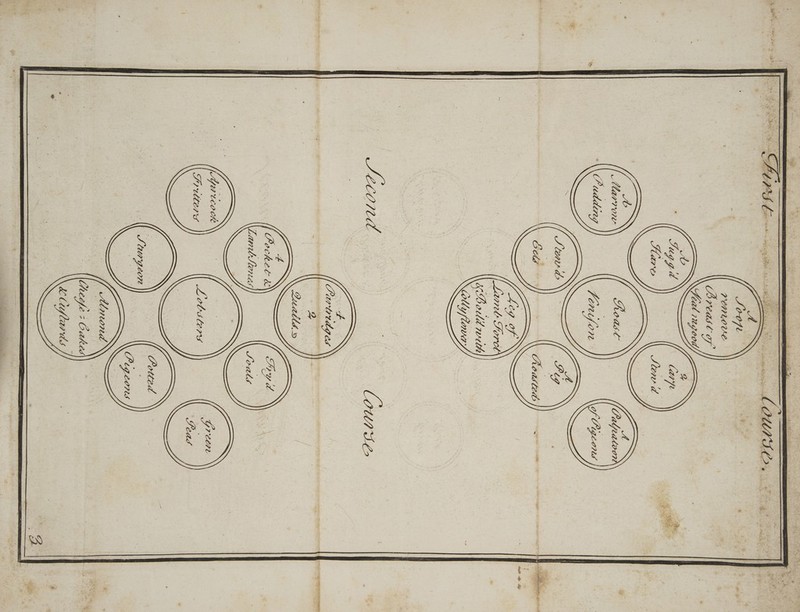 First Course.
A
Soop
remove
Breast of
Veal ragood
A
Jugg'd
Hare
2
Carp
Stew'd
A
Marrow
Pudding
Roast
Venison
A
Pulpatoon
of Pigeons
Stew'd
Eels
A
Pig
Roasted
Leg of
Lamb Forct
& Boild with
Collyflower
Second Course
4
Partridges
2
Quails
4
&
Lamb
Fry'd
Soals
Apricock
Fritters
Lobsters
Green
Peas
Sturgeon
Potted
Pigeons
Almond
Cheese-Cakes
& Custards
3